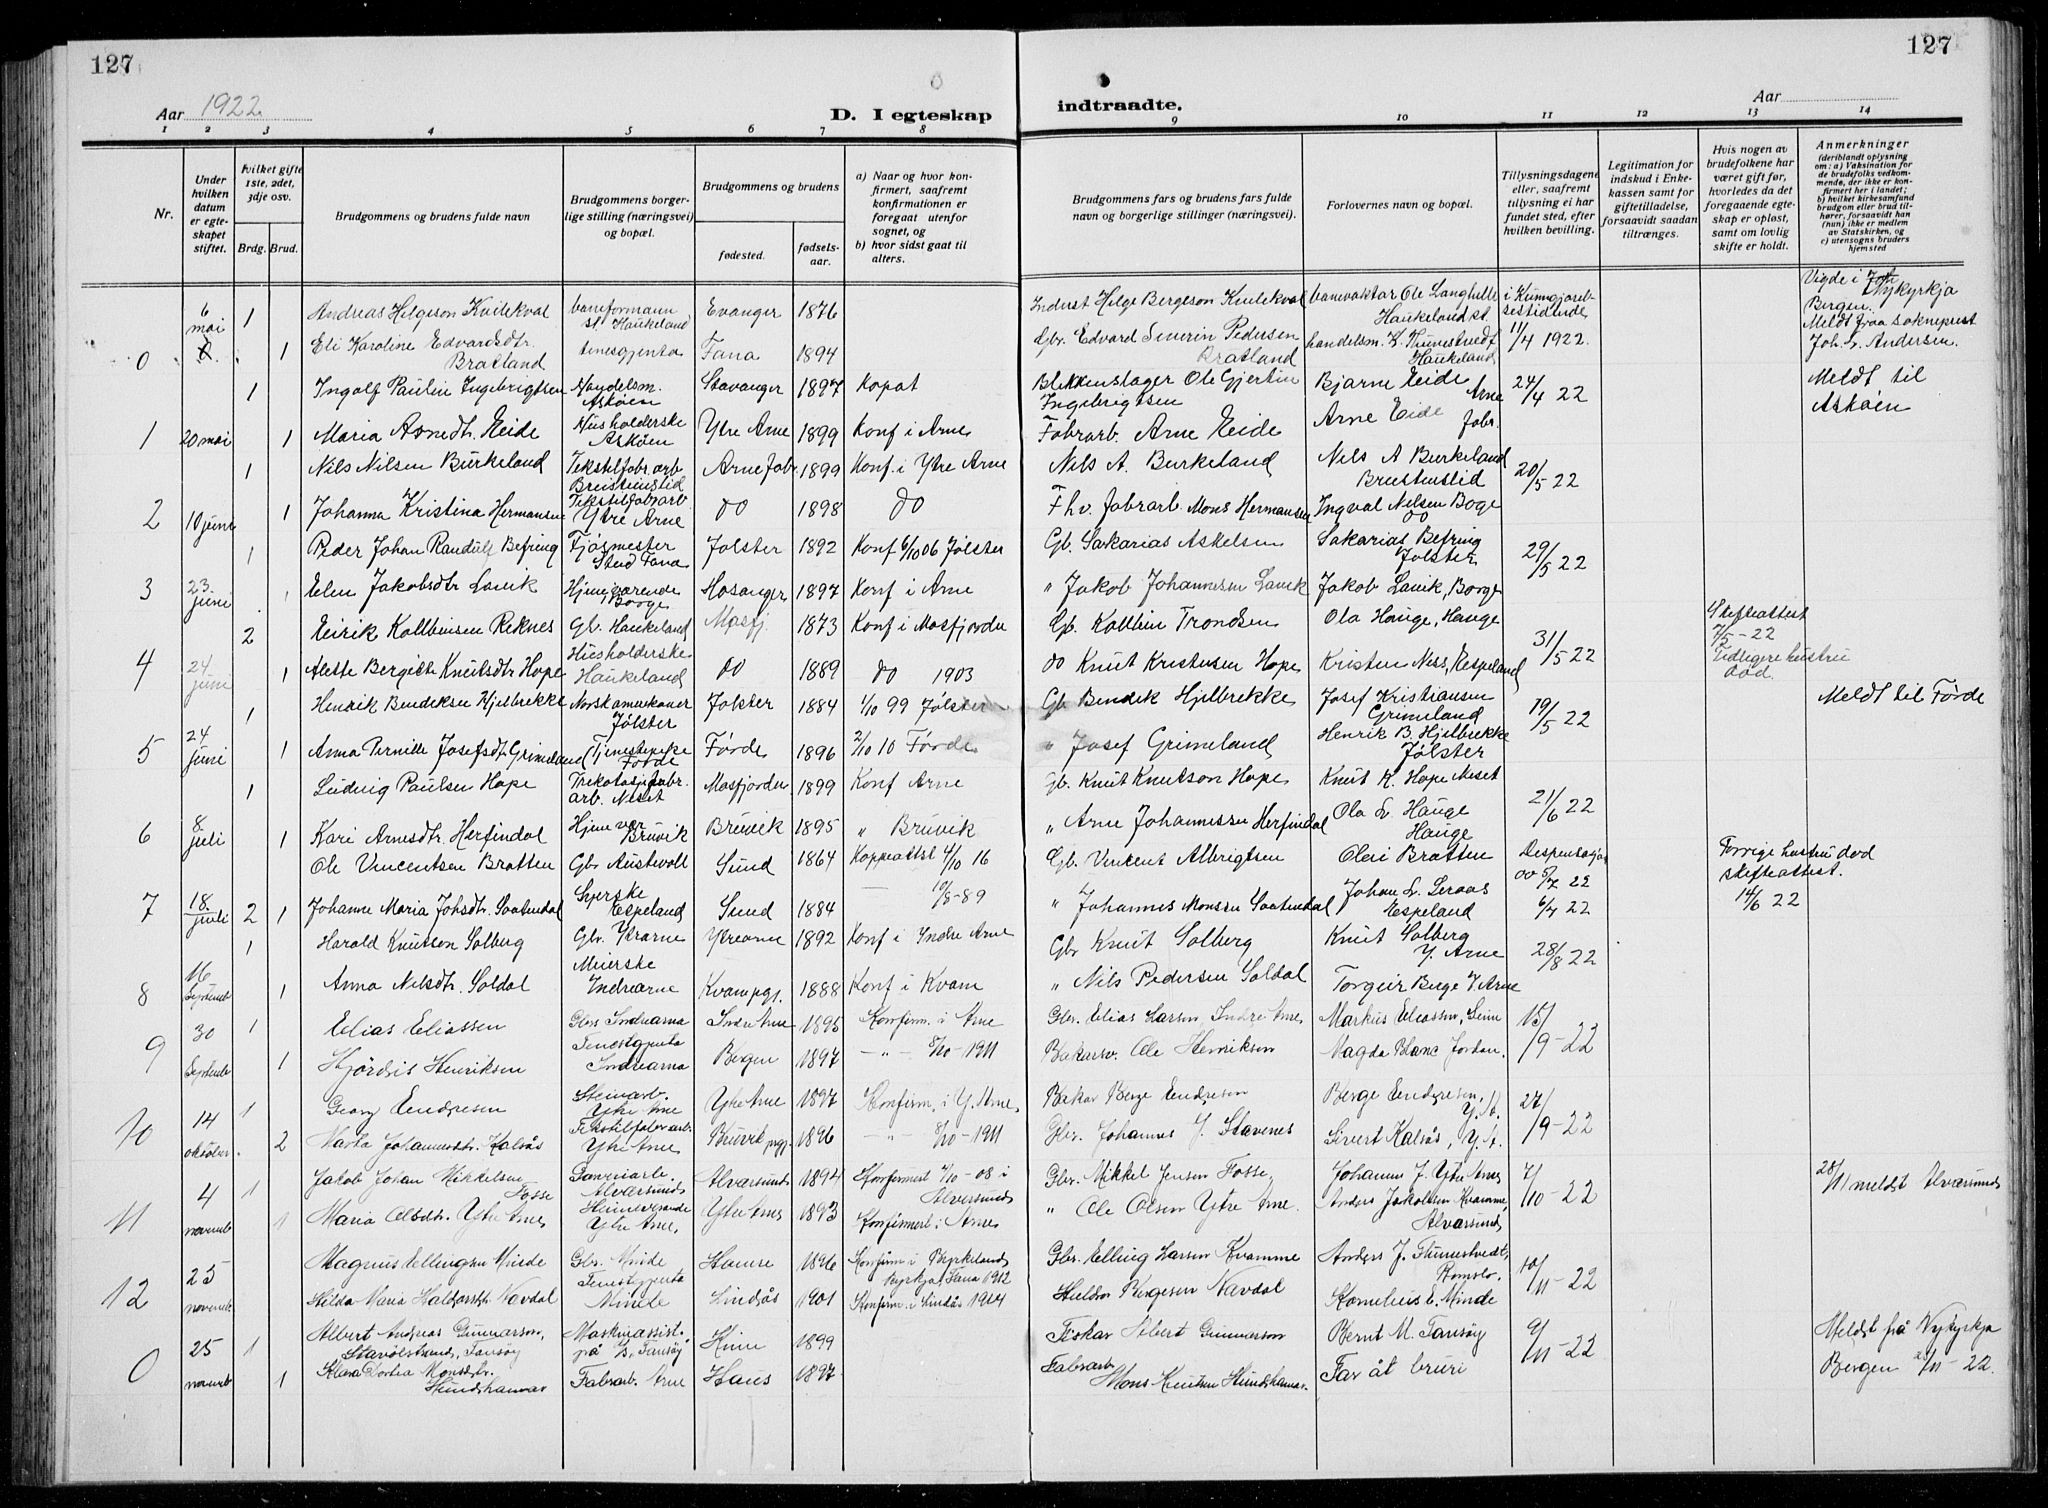 127
127
Aar 1922
D. I egteskap indtraadte.
Aar
1 2 3 4 5 6 7 8 9 10 11 12 13 14
Nr.
Under hvilken datum er egteskapet stiftet.
hvilket gifte 1ste, 2det, 3dje osv.
Brdg. Brud.
Brudgommens og brudens fulde navn
Brudgommens borgerlige stilling (næringsvei) og bopæl.
Brudgommens og brudens
fødested.
fødselsaar.
a) Naar og hvor konfirmert, saafremt konfirmationen er foregaat utenfor sognet, og
b) hvor sidst gaat til alters.
Brudgommens fars og brudens fars fulde navn og borgerlige stillinger (næringsvei).
Forlovernes navn og bopæl.
Tillysningsdagene eller, saafremt tillysning ei har fundet sted, efter hvilken bevilling.
Legitimation for indskud i Enkekassen samt for giftetilladelse, forsaavidt saadan tiltrænges.
Hvis nogen av brudefolkene har været gift før, hvorledes da det foregaaende egteskap er opløst, samt om lovlig skifte er holdt.
Anmerkninger
(deriblandt oplysning om: a) Vaksination for de brudefolks vedkommende, der ikke er konfirmert her i landet; b) hvilket kirkesamfund brudgom eller brud tilhører, forsaavidt han (hun) ikke er medlem av Statskirken, og c) utensogns bruders hjemsted
6 mai 1 Andreas Helgeson Kvitekval baneformann st. Haukeland Evanger 1876 Inderst Helge Bergeson Kvitekval banevaktar Ole Langhelle Haukeland st. i Kunngjorelsestidende 11/4 1922. Vigde i Nykyrkja Bergen.
0 1 Eli Karoline Edvardsdtr. Bratland tenesgjenta Fana 1894 Gbr. Edvard Severin Pedersen Bratland handelsm. K. Tunestvedt Haukeland Meldt fraa sokneprest Joh. L. Andersen.
1 Ingolf Paulin Ingebrigtsen Handelsm. Askøen Stavanger 1897 Kopat Blekkenslager Ole Gjertin Ingebrigtsen Bjarne Eide Arne 24/4 22 Meldt til Askøen
1 20 mai 1 Maria Arnedtr. Eide Husholderske Askøen Ytre Arne 1899 Konf i Arne Fabrarb. Arne Eide Arne Eide fabr.
1 Nils Nilsen Burkeland Tekstilfabr.arb Breistenslid Arne Fabr 1899 Konf. i Ytre Arne Nils A. Burkeland Nils A Burkeland Breistenslid 20/5 22
2 10 juni 1 Johanna Kristina Hermansen Tekstilfabrarb Ytre Arne do 1898 do Fhv. fabrarb. Mons Hermansen Ingval Nilsen Boge do
1 Peder Johan Randulf Befring Fjøsmester Stend Fana Jølster 1892 Konf 6/10 06 Jølster Gb. Sakarias Askelsen Sakarias Befring Jølster 29/5 22
3 23. juni 1 Elen Jakobsdtr Lavik Hjemmeværende Borge Hosanger 1897 Konf i Arne " Jakob Johannesen Lavik Jakob Lavik, Borge
2 Eirik Kolbeinsen Reknes Gb. Haukeland Masfj. 1873 Konf i Masfjorden Gb. Kolbein Trondsen Ola Hauge, Hauge 31/5 22 Skifteattest 7/5-22 Tidligere hustru død.
4 24 juni 1 Alette Bergitte Knutsdtr Hope Husholderske Haukeland do 1889 do 1903 do Knut Kristensen Hope Kristen Ness, Espeland
1 Henrik Bendeksen Hjelbrekke Norskamerikaner Jølster Jølster 1884 1/10 99 Jølster Gb Bendik Hjelbrekke Josef Kristiansen Grimeland 19/5 22 Meldt til Førde
5 24 juni 1 Anna Pernille Josefsdtr Grimeland Tjenestepike Førde Førde 1896 2/10 10 Førde " Josef Grimeland Henrik B. Hjelbrekke Jølster
1 Ludvig Paulsen Hope Trekotasjefabr. arb. Neset Masfjorden 1899 Konf Arne Gb. Knut Knutson Hope Knut K. Hope Neset 21/6 22
6 8. juli 1 Kari Arnesdtr. Herfindal Hjemmev Bruvik Bruvik 1895 " Bruvik " Arne Johannessen Herfindal Ola L. Hauge Hauge
Ole Vincentsen Bratten Gbr Austevoll Sund 1864 Koppeattst 4/10 16 Gb. Vincent Albrigtsen Oleri Bratten Despensasjon do 5/7 22 Forrige hustru død skifteattest. 14/6 22
7 18. juli 2 1 Johanne Maria Johsdtr. Saatendal Syerske Espeland Sund 1884 10/8-89 " Johannes Monsen Saatendal Johan L. Seraas Espeland 6/7 22
1 Harald Knutson Solberg Gbr. Ytrarne Ytrearne 1892 Konf i Indre Arne Gbr Knut Solberg Knut Solberg Y. Arne 28/8 22
8 16 September 1 Anna Nilsdtr. Soldal Meierske Indrearne Kvam pgj. 1888 Konf i Kvam " Nils Pedersen Soldal Torgeir Berge Y Arne
9 30 September 1 Elias Eliassen Gbr. Indrearna Indre Arne 1895 Konfirm. i Arne Gbr. Elias Larsen Indre Arne Markus Eliassen, Seim 15/9-22
1 Hjørdis Henriksen Tenestgjenta Indrearna Bergen 1897 -"- 8/10-1911 Bakarsv. Ole Henriksen Magda Blanc Jordan.
10 14 oktober 1 Georg Endresen Steinarb. Ytre Arne Ytre Arne 1897 Konfirm. i Y. Arne. Bakar Berge Endresen Berge Endresen, Y.A. 27/9-22
2 Marta Johannesdtr. Kalsås Tekstilfabrarb. Ytre Arne Bruvik pgj. 1896 -"- 8/10-1911 Gbr. Johannes J. Stavenes Sivert Kalsås, Y.A.
11 4 november 1 Jakob Johan Mikkelsen Fosse Garveriarb. Alversund Alversund 1894 Konfirmert 4/10-08 i Alversund Gbr. Mikkel Jensen Fosse, Johannes J. Ytre Arne 7/10-22 28/11 meldt Alversund
1 Maria Olsdtr. Ytre Arne Heimeverande Ytre Arne, Ytre Arne 1893 Konfirmert i Arne " Ole Olsen Ytre Arne. Anders Jakobsen Kvamme, Alversund
12 25 november Magnus Ellingsen Minde Gbr. Minde Hamre 1896 Konfirm i Byrkeland kyrkja, Fana 1912 Gbr. Elling Larsen Kvamme Anders J. Tunestvedt, Romslo. 10/11-22
Hilda Maria Haldorsdtr. Navdal Tenestgjenta Minde Lindås 1901 Konfirm. i Lindås 1914 Haldor Bergesen Navdal Kornelius E. Minde
0 25 november 1 Albert Andreas Gunnarson, Stavølstrand, Fansøy Maskinassist. på Kinn 1899 Fiskar Albert Gunnarson Bernt M. Fansøy 9/11-22 Meldt frå Nykyrkja
1 Klara Dortea Monsdtr. Hundshamar Fabrarb. Arne Haus 1897 Fabrarb. Mons Knutsen Hundshamar. Far åt bruri Bergen 28/11-22.